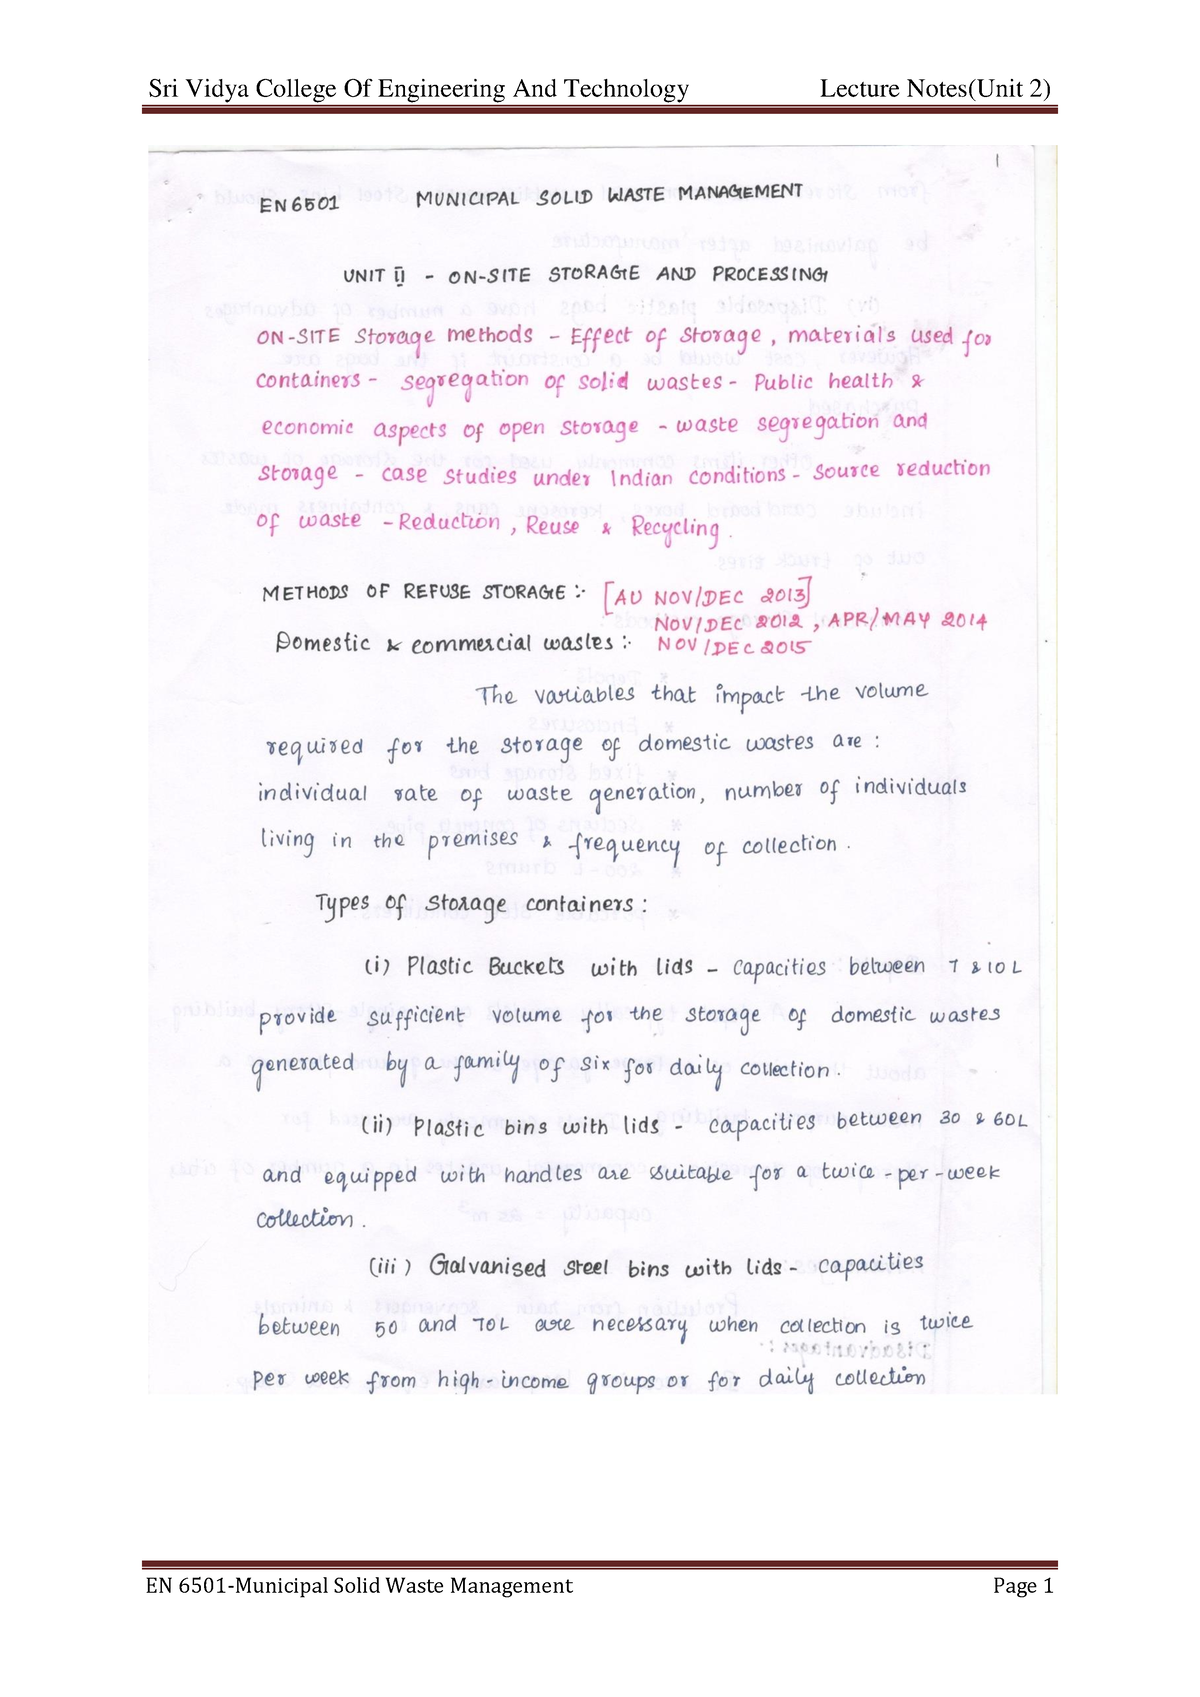 Sri Vidya College Of Engineering And Technology Lecture Notes(Unit 2)
1
EN6501 MUNICIPAL SOLID WASTE MANAGEMENT
UNIT II - ON-SITE STORAGE AND PROCESSING
ON-SITE Storage methods - Effect of Storage, materials used for
containers - segregation of solid wastes - Public health &
economic aspects of open storage - waste segregation and
Storage - case studies under Indian conditions - Source reduction
of waste - Reduction, Reuse & Recycling.
METHODS OF REFUSE STORAGE :- [AU NOV/DEC 2013]
NOV/DEC 2012, APR/MAY 2014
Domestic & commercial wastes :- NOV/DEC 2015
The variables that impact the volume
required for the storage of domestic wastes are :
individual rate of waste generation, number of individuals
living in the premises & frequency of collection.
Types of storage containers :
(i) Plastic Buckets with lids - capacities between 7 & 10 L
provide sufficient volume for the storage of domestic wastes
generated by a family of six for daily collection.
(ii) Plastic bins with lids - capacities between 30 & 60L
and equipped with handles are suitable for a twice-per-week
collection.
(iii) Galvanised steel bins with lids - capacities
between 50 and 70L are necessary when collection is twice
per week from high-income groups or for daily collection
EN 6501-Municipal Solid Waste Management Page 1